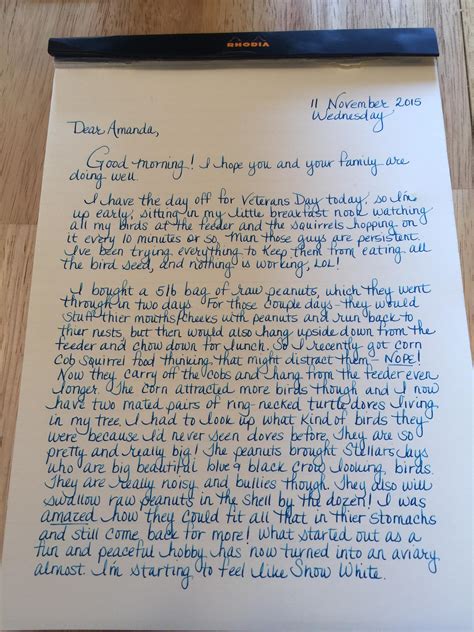 RHODIA
11 November 2015
Wednesday
Dear Amanda,
Good morning! I hope you and your family are
doing well.
I have the day off for Veterans Day today, so I'm
up early, sitting in my little breakfast nook watching
all my birds at the feeder and the squirrels hopping on
it every 10 minutes or so. Man those guys are persistent.
I've been trying everything to keep them from eating all
the bird seed, and nothing is working, LOL!
I bought a 5lb bag of raw peanuts, which they went
through in two days. For those couple days they would
stuff thier mouths/cheeks with peanuts and run back to
thier nests, but then would also hang upside down from the
feeder and chow down for lunch. So I recently got corn
cob squirrel food thinking that might distract them - NOPE!
Now they carry off the cobs and hang from the feeder even
longer. The corn attracted more birds though and I now
have two mated pairs of ring-necked turtle doves living
in my tree. I had to look up what kind of birds they
were because I'd never seen doves before. They are so
pretty and really big! The peanuts brought Stellars Jays
who are big beautiful blue & black crow looking birds.
They are really noisy and bullies though. They also will
swallow raw peanuts in the shell by the dozen! I was
amazed how they could fit all that in thier stomachs
and still come back for more! What started out as a
fun and peaceful hobby has now turned into an aviary
almost. I'm starting to feel like Snow White.